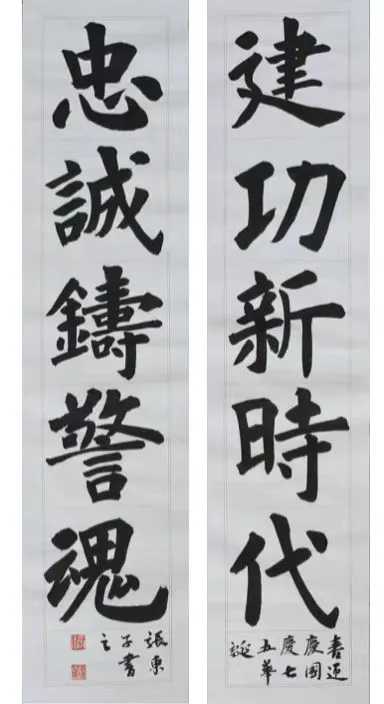 建功新時代
喜迎
慶國
慶七
五華
誕
忠誠鑄警魂
張東
子書
之